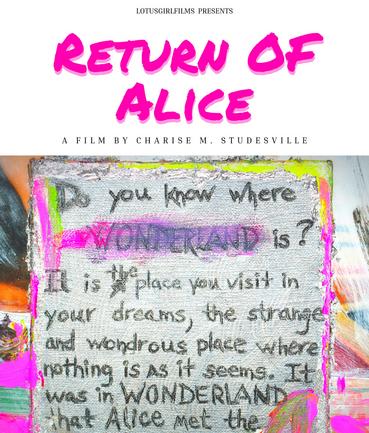 LOTUSGIRLFILMS PRESENTS
RETURN OF
ALICE
A FILM BY CHARISE M. STUDESVILLE
Do you know where
WONDERLAND is?
It is the place you visit in
your dreams, the strange
and wondrous place where
nothing is as it seems. It
was in WONDERLAND
that Alice met the